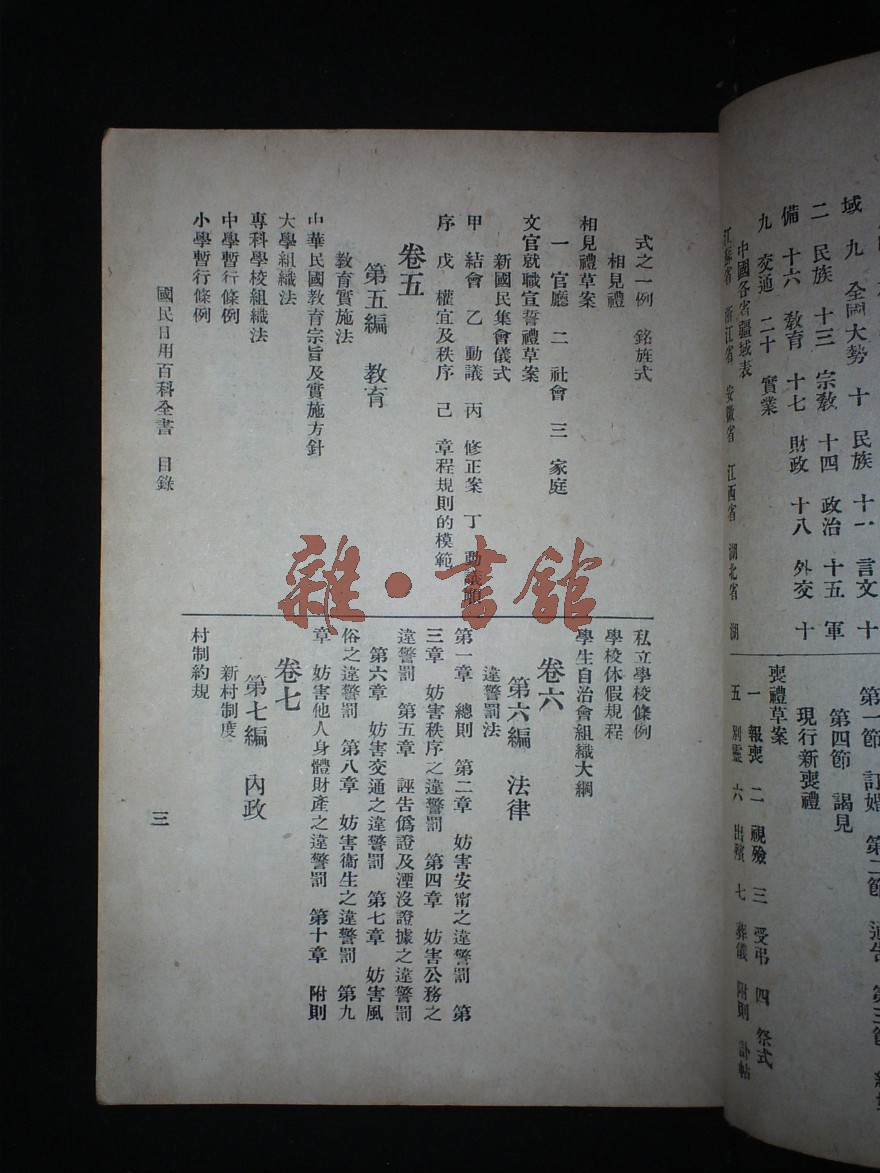 域 九 全國大勢 十 民族 十一 言文 十
二 民族 十三 宗教 十四 政治 十五 軍
備 十六 教育 十七 財政 十八 外交 十
九 交通 二十 實業
中國各省疆域表
江蘇省 浙江省 安徽省 江西省 湖北省 湖
第一節 訂婚 第二節 通告 第三節
第四節 謁見
現行新喪禮
喪禮草案
一 報喪 二 視殮 三 受弔 四 祭式
五 別靈 六 出殯 七 葬儀 附則 訃帖
式之一例 銘旌式
相見禮
相見禮草案
一 官廳 二 社會 三 家庭
文官就職宣誓禮草案
新國民集會儀式
甲 結會 乙 動議 丙 修正案 丁 動議順
序 戊 權宜及秩序 己 章程規則的模範
卷五
第五編 教育
教育實施法
中華民國教育宗旨及實施方針
大學組織法
專科學校組織法
中學暫行條例
小學暫行條例
私立學校條例
學校休假規程
學生自治會組織大綱
卷六
第六編 法律
違警罰法
第一章 總則 第二章 妨害安甯之違警罰 第
三章 妨害秩序之違警罰 第四章 妨害公務之
違警罰 第五章 誣告僞證及湮沒證據之違警罰
第六章 妨害交通之違警罰 第七章 妨害風
俗之違警罰 第八章 妨害衞生之違警罰 第九
章 妨害他人身體財產之違警罰 第十章 附則
卷七
第七編 內政
新村制度
村制約規
國民日用百科全書 目錄
三
雜·書館